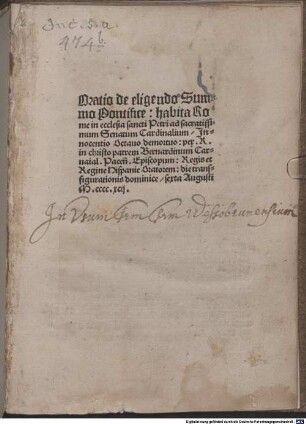 Inc. s. a.
474 b.
Oratio de eligendo Sum-
mo Pontifice: habita Ro
me in ecclesia sancti Petri ad sacratissi-
mum Senatum Cardinalium - In-
nocentio Octauo demortuo: per. R.
in christo patrem Bernardinum Car-
uaial. Pacen̄. Episcopum: Regis et
Regine Hispanie Oratorem: die trans-
figurationis dominice - sexta Augusti
M.cccc.xcij.
In Usum
Wessobrunensium